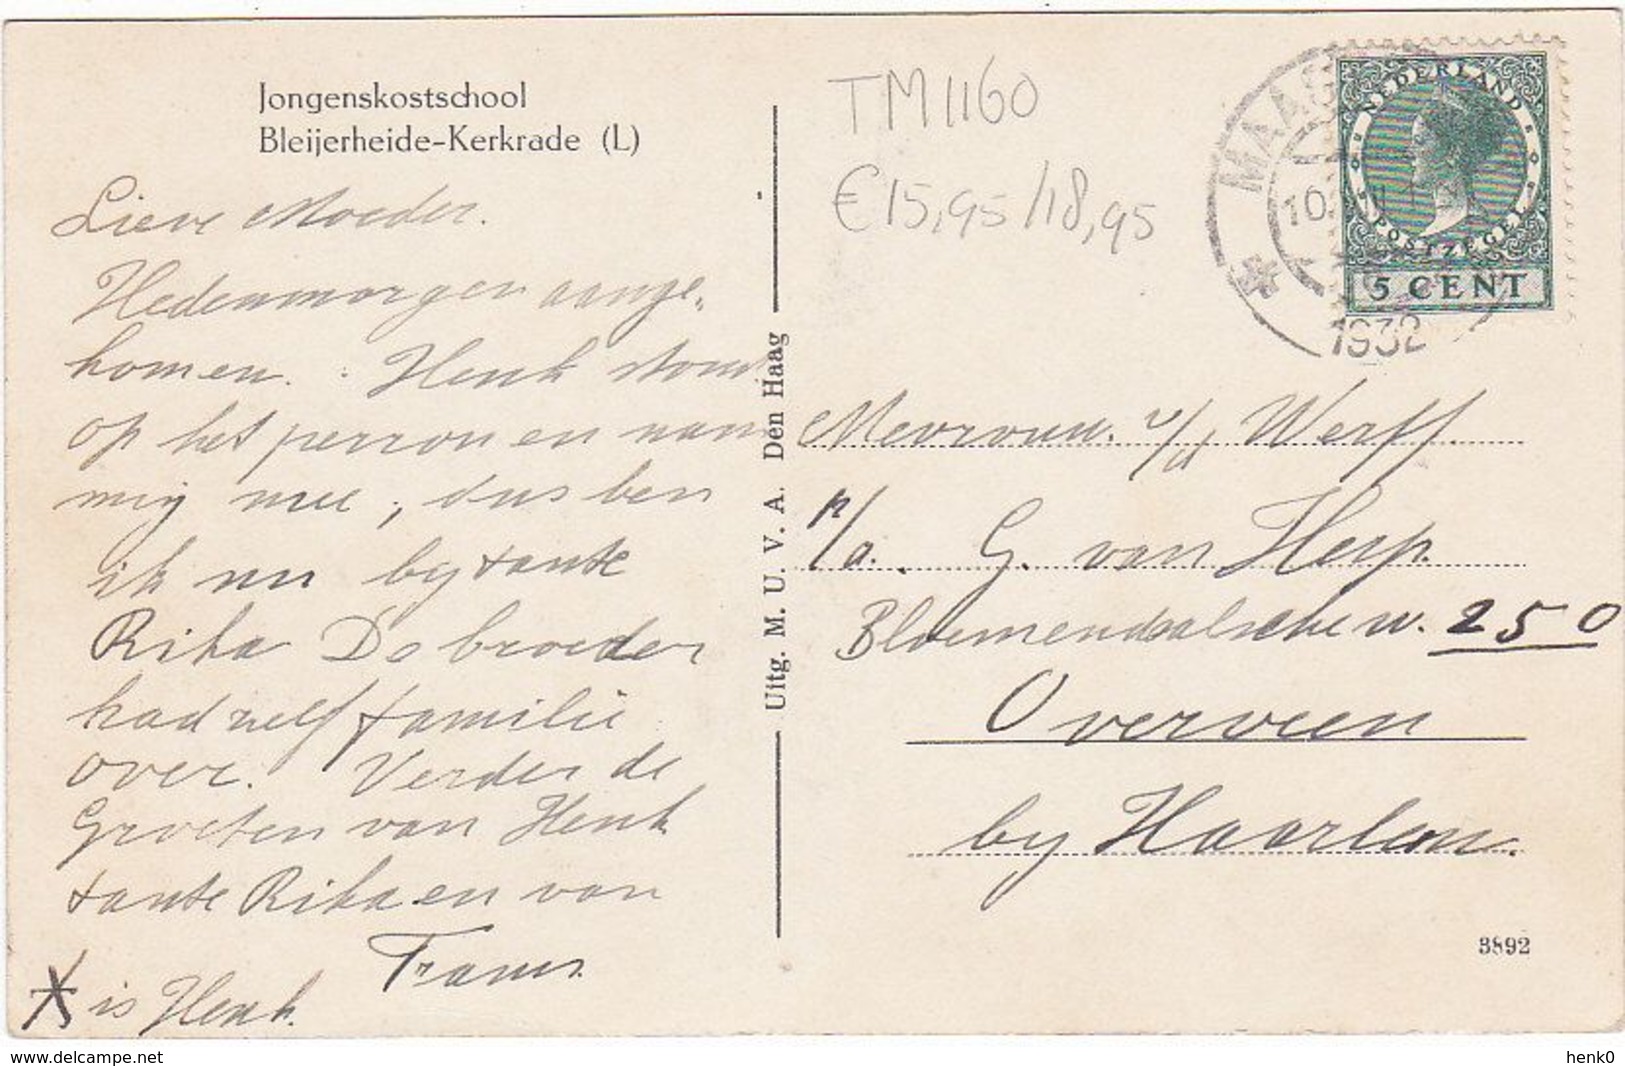 Jongenskostschool
Bleijerheide-Kerkrade (L)
Lieve Moeder.
Hedenmorgen aange-
komen. Henk stond
op het perron en nam
mij mee, dus ben
ik nu bij tante
Rika De broeder
had zelf familie
over. Verder de
Groeten van Henk
tante Rika en van
Frans.
X is Henk.
Uitg. M. U. V. A. Den Haag
TM1160
€15,95/18,95
NEDERLAND
POSTZEGEL
5 CENT
MAAS
10
1932
Mevrouw. v/d Werff.
p/a. G. van Herp.
Bloemendaalsche w. 250
Overveen
by Haarlem.
3892
www.delcampe.net
henk0